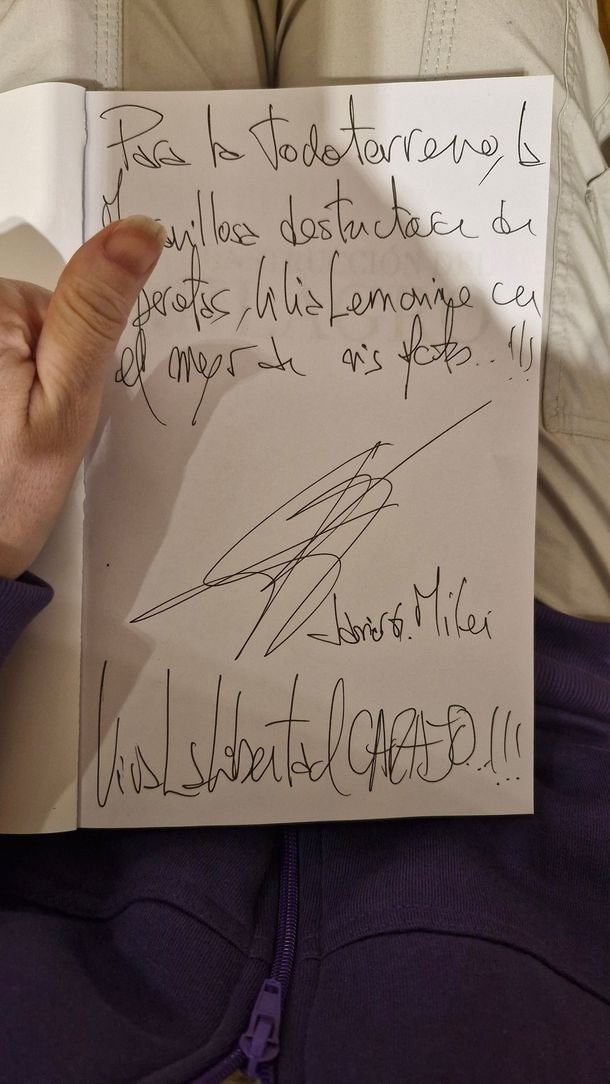 Para la todoterreno, la
destructora de
Lilia Lemoine con
el mejor de mis
Javier G. Milei
Viva La Libertad CARAJO..!!!